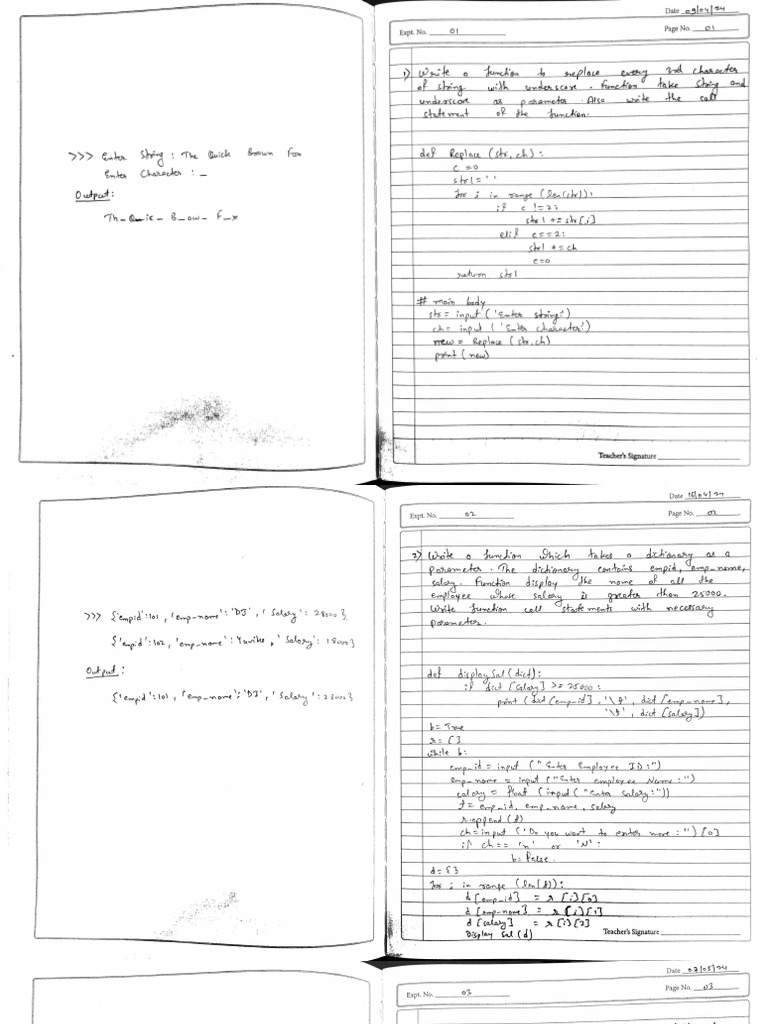 Date 09/04/24
Expt. No. 01
Page No. 01
>>> Enter String : The Quick Brown Fox
Enter Character : _
Output :
Th_Q_ic_ B_ow_ F_x
1) Write a function to replace every 3rd character
of string with underscore. Function take String and
underscore as parameter. Also write the call
statement of the function.
def Replace (str, ch) :
c = 0
str1 = ' '
for i in range (len(str)):
if c != 2:
str1 += str[i]
elif c == 2:
str1 += ch
c = 0
return str1
# main body
str = input ('Enter string:')
ch = input ('Enter character:')
new = Replace (str, ch)
print (new)
Teacher's Signature
Date 15/04/24
Expt. No. 02
Page No. 02
>>> {'empid':101, 'emp-name': 'DJ', 'Salary': 28000}
{'empid':102, 'emp-name': , 'Salary': 18000}
Output :
{'empid':101, 'emp-name': 'DJ', 'Salary': 28000}
2) Write a function which takes a dictionary as a
parameter. The dictionary contains empid, emp-name,
salary. Function display the name of all the
employee whose salary is greater than 25000.
Write function call statements with necessary
parameter.
def displaySal (dict):
if dict [salary] >= 25000:
print (dict [emp-id], '\t', dict [emp-name],
'\t', dict [salary])
b = True
r = [ ]
while b:
emp-id = input ("Enter Employee ID:")
emp-name = input ("Enter employee Name:")
salary = float (input ("Enter Salary:"))
t = emp-id, emp-name, salary
r.append (t)
ch = input ('Do you want to enter more :") [0]
if ch == 'n' or 'N':
b = False.
d = { }
for i in range (len(t)):
d [emp-id] = r [i][0]
d [emp-name] = r [i][1]
d [salary] = r [i][2]
Display Sal (d)
Teacher's Signature
Date 02/05/24
Expt. No. 03
Page No. 03